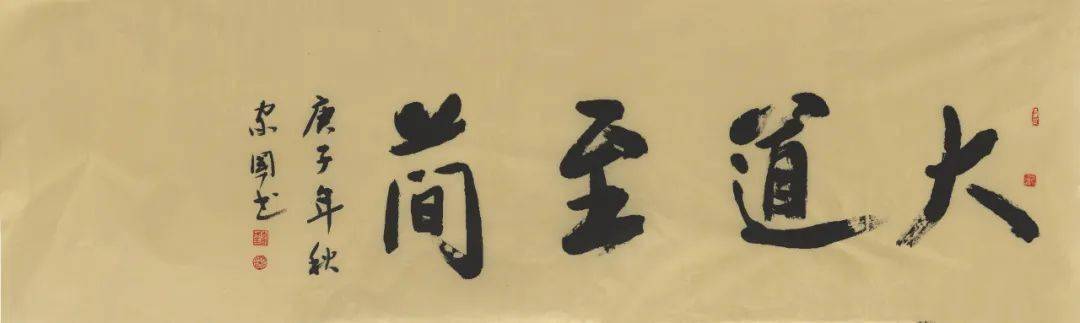 大道至简
庚子年秋
家国书